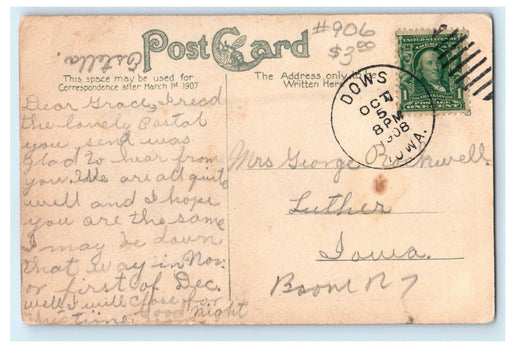 Estella.
Post Card
#906
$3.00
This space may be used for
Correspondence after March 1st 1907
The Address only to be
Written Here
UNITED STATES OF AMERICA
1 1
POSTAGE
ONE CENT
DOWS
OCT
5
8 PM
1908
IOWA.
Dear Grace, I recd
the lovely Postal
you send was
glad to hear from
you. We are all quite
well and I hope
you are the same
I may be down
that way in Nov.
or first of Dec.
well I will close for
this time Good Night
Mrs George Rockwell.
Luther
Iowa.
Boone R 7